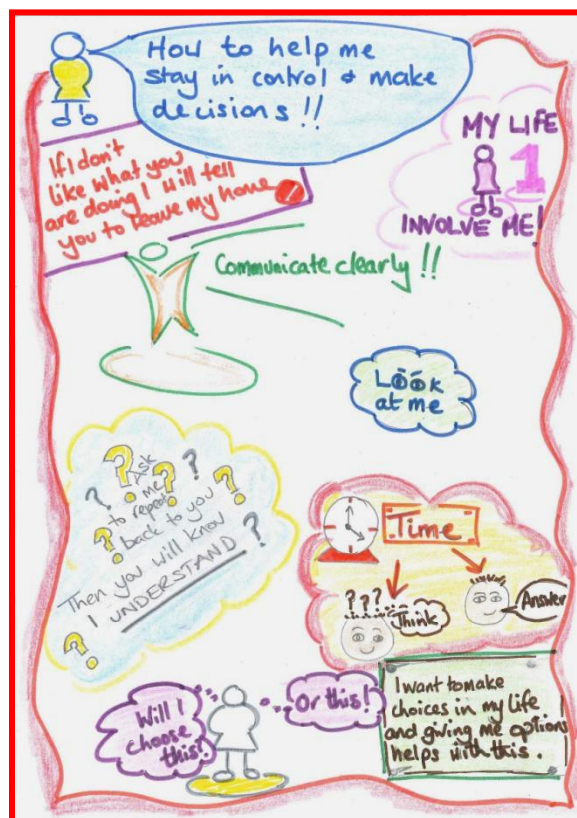 How to help me
stay in control & make
decisions !!
If I don't
like what you
are doing I will tell
you to leave my home
MY LIFE
1
INVOLVE ME!
Communicate clearly !!
Look
at me
? Ask ?
? me ?
to repeat ?
? back to you
Then you will know ?
I UNDERSTAND
?
Time
???
Think
Answer
Will I
choose
this?
Or this!
I want to make
choices in my life
and giving me options
helps with this.